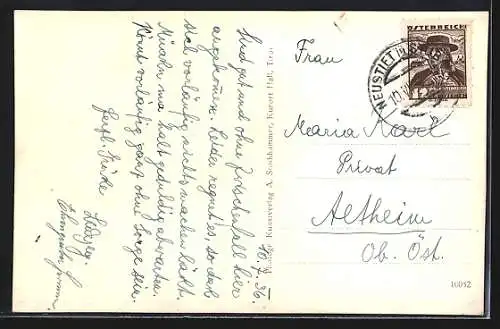 10.7.36.
Sind gut und ohne Zwischenfall hier
angekommen. Leider regnet es, sodass
sich vorläufig nichts machen lässt.
Müssen nun halt geduldig abwarten.
Könnt vorläufig ganz ohne Sorge sein.
Herzl. Grüße
Kunstverlag A. Stockhammer, Kurort Hall, Tirol
ÖSTERREICH
12
NEUSTIFT IM
10.VII
b
Frau
Maria Karl
Privat
Altheim
Ob. Öst.
10052